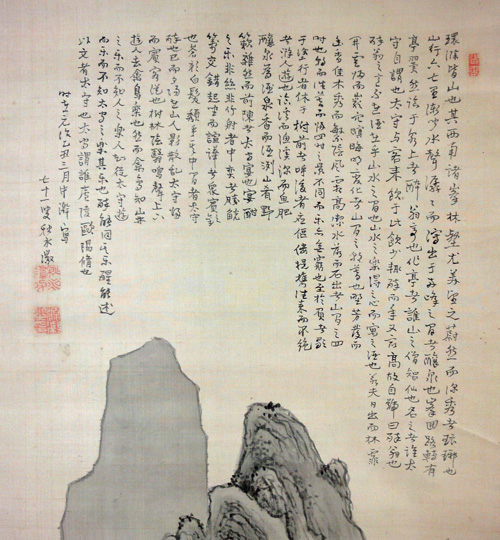 環滁皆山也其西南諸峯林壑尤美望之蔚然而深秀者琅琊也
山行六七里漸聞水聲潺々而瀉出于兩峰之間者釀泉也峯回路轉有
亭翼然臨于泉上者醉翁亭也作亭者誰山之僧智仙也名之者誰太
守自謂也太守与客来飲于此飲少輒醉而年又最高故自號曰醉翁也
醉翁之意不在酒在乎山水之間也山水之樂得之心而寓之酒也若夫日出而林霏
開雲歸而巖穴暝晦明變化者山間之朝暮也野芳發而
幽香佳木秀而繁陰風霜高潔水落而石出者山間之四
時也朝而往暮而歸四時之景不同而樂亦無窮也至於負者歌
于塗行者休于樹前者呼後者應傴僂提攜往来而不絶
者滁人遊也臨溪而漁溪深而魚肥
釀泉為酒泉香而酒洌山肴野
蔌雜然而前陳者太守宴也宴酣
之樂非絲非竹射者中奕者勝觥
籌交錯起坐而諠譁者衆賓歡
也蒼顔白髮頽乎其中者太守
醉也已而夕陽在山人影散乱太守歸
而賓客従也樹林陰翳鳴聲上下
遊人去而禽鳥樂也然而禽鳥知山林
之樂而不知人之樂人知從太守遊
而樂而不知太守之樂其樂也醉能同其樂醒能述
以文者太守也太守謂誰廬陵歐陽脩也
元治乙丑三月中澣寫
七十一叟秋水